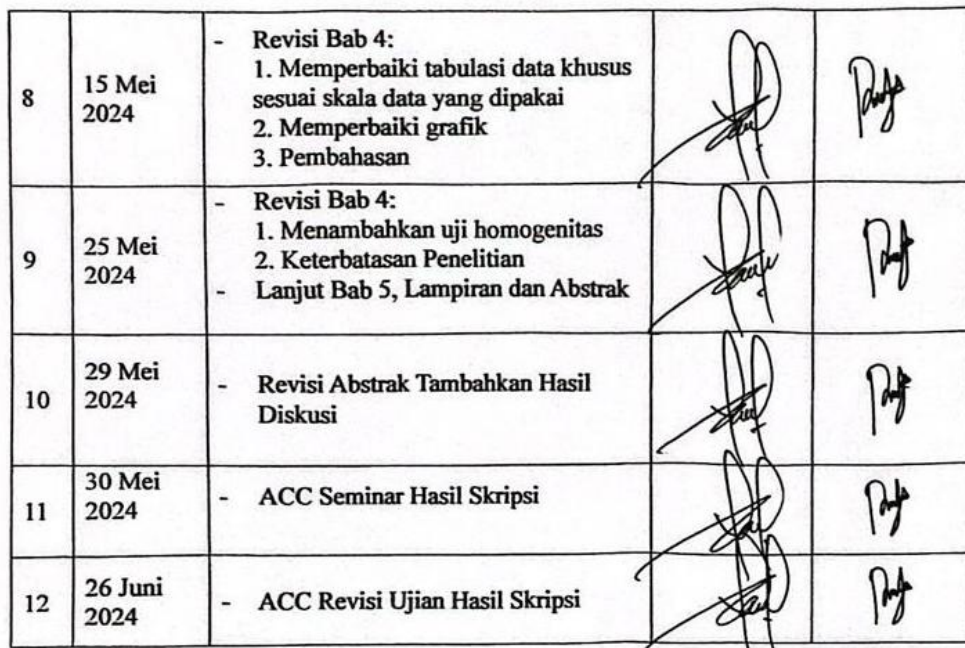 8
15 Mei
2024
- Revisi Bab 4:
1. Memperbaiki tabulasi data khusus
sesuai skala data yang dipakai
2. Memperbaiki grafik
3. Pembahasan
9
25 Mei
2024
- Revisi Bab 4:
1. Menambahkan uji homogenitas
2. Keterbatasan Penelitian
- Lanjut Bab 5, Lampiran dan Abstrak
10
29 Mei
2024
- Revisi Abstrak Tambahkan Hasil
Diskusi
11
30 Mei
2024
- ACC Seminar Hasil Skripsi
12
26 Juni
2024
- ACC Revisi Ujian Hasil Skripsi